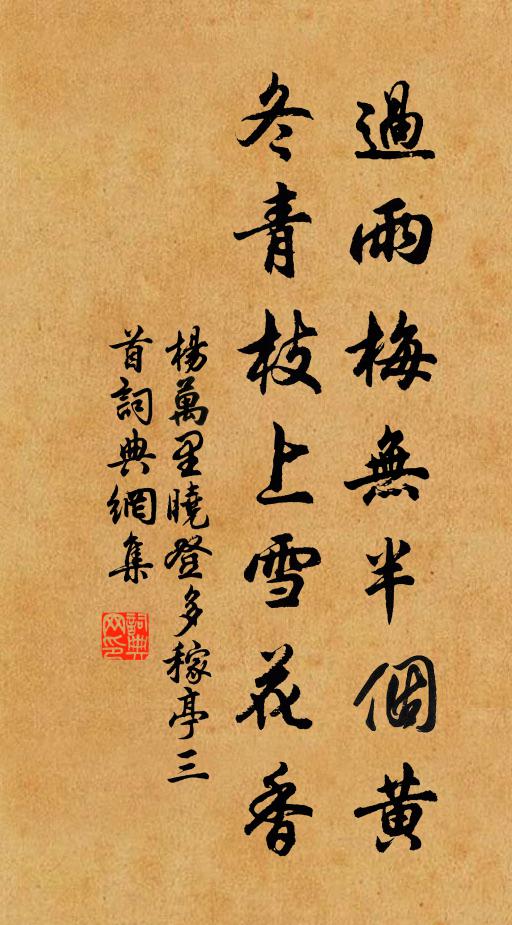 過雨梅無半個黄
冬青枝上雪花香
楊萬里曉登多稼亭三
首詞典網集
詞典网印